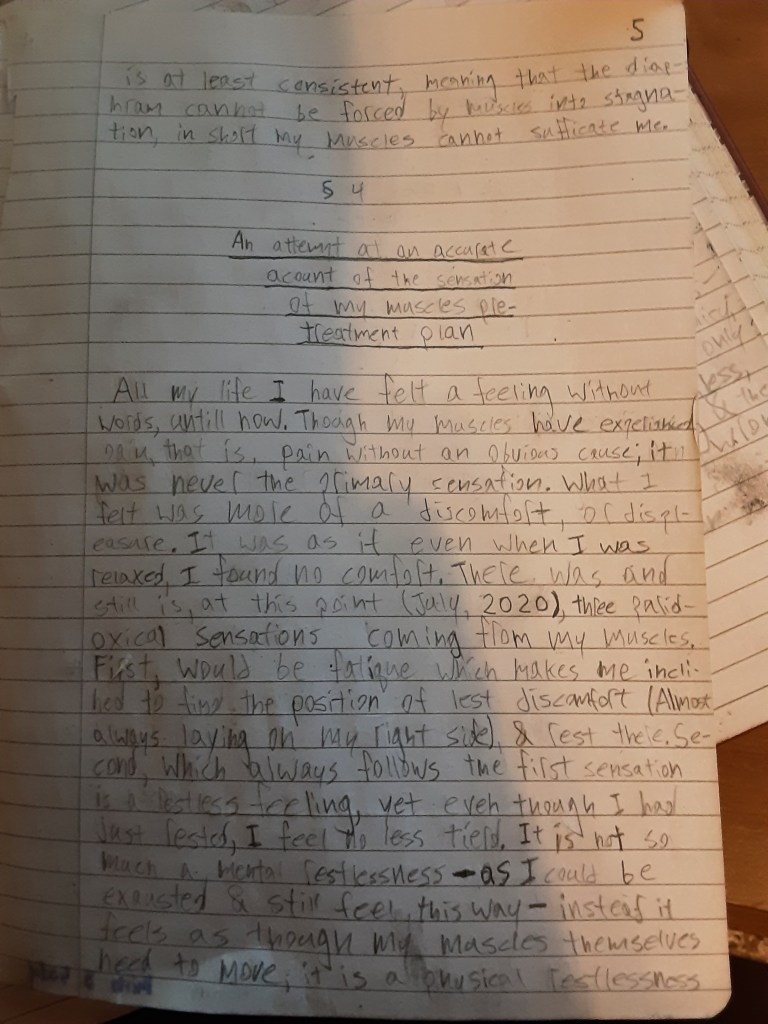 5
is at least consistent, meaning that the diap-
hram cannot be forced by muscles into stagna-
tion, in short my muscles cannot sufficate me.
§ 4
An attempt at an accurate
acount of the sensation
of my muscles pre-
treatment plan
All my life I have felt a feeling without
words, untill now. Though my muscles have experianced
pain, that is, pain without an obvious cause; it
was never the primary sensation. What I
felt was more of a discomfort, or displ-
easure. It was as if even when I was
relaxed, I found no comfort. There was and
still is, at this point (July, 2020), three parid-
oxical sensations coming from my muscles.
First, would be fatigue which makes me incli-
ned to find the position of lest discomfort (Almost
always laying on my right side), & rest there. Se-
cond, which always follows the first sensation
is a restless feeling, yet even though I had
just rested, I feel no less tierd. It is not so
much a mental restlessness - as I could be
exausted & still feel this way - insteaf it
feels as though my muscles themselves
need to move; it is a physical restlessness
only
less,
& the